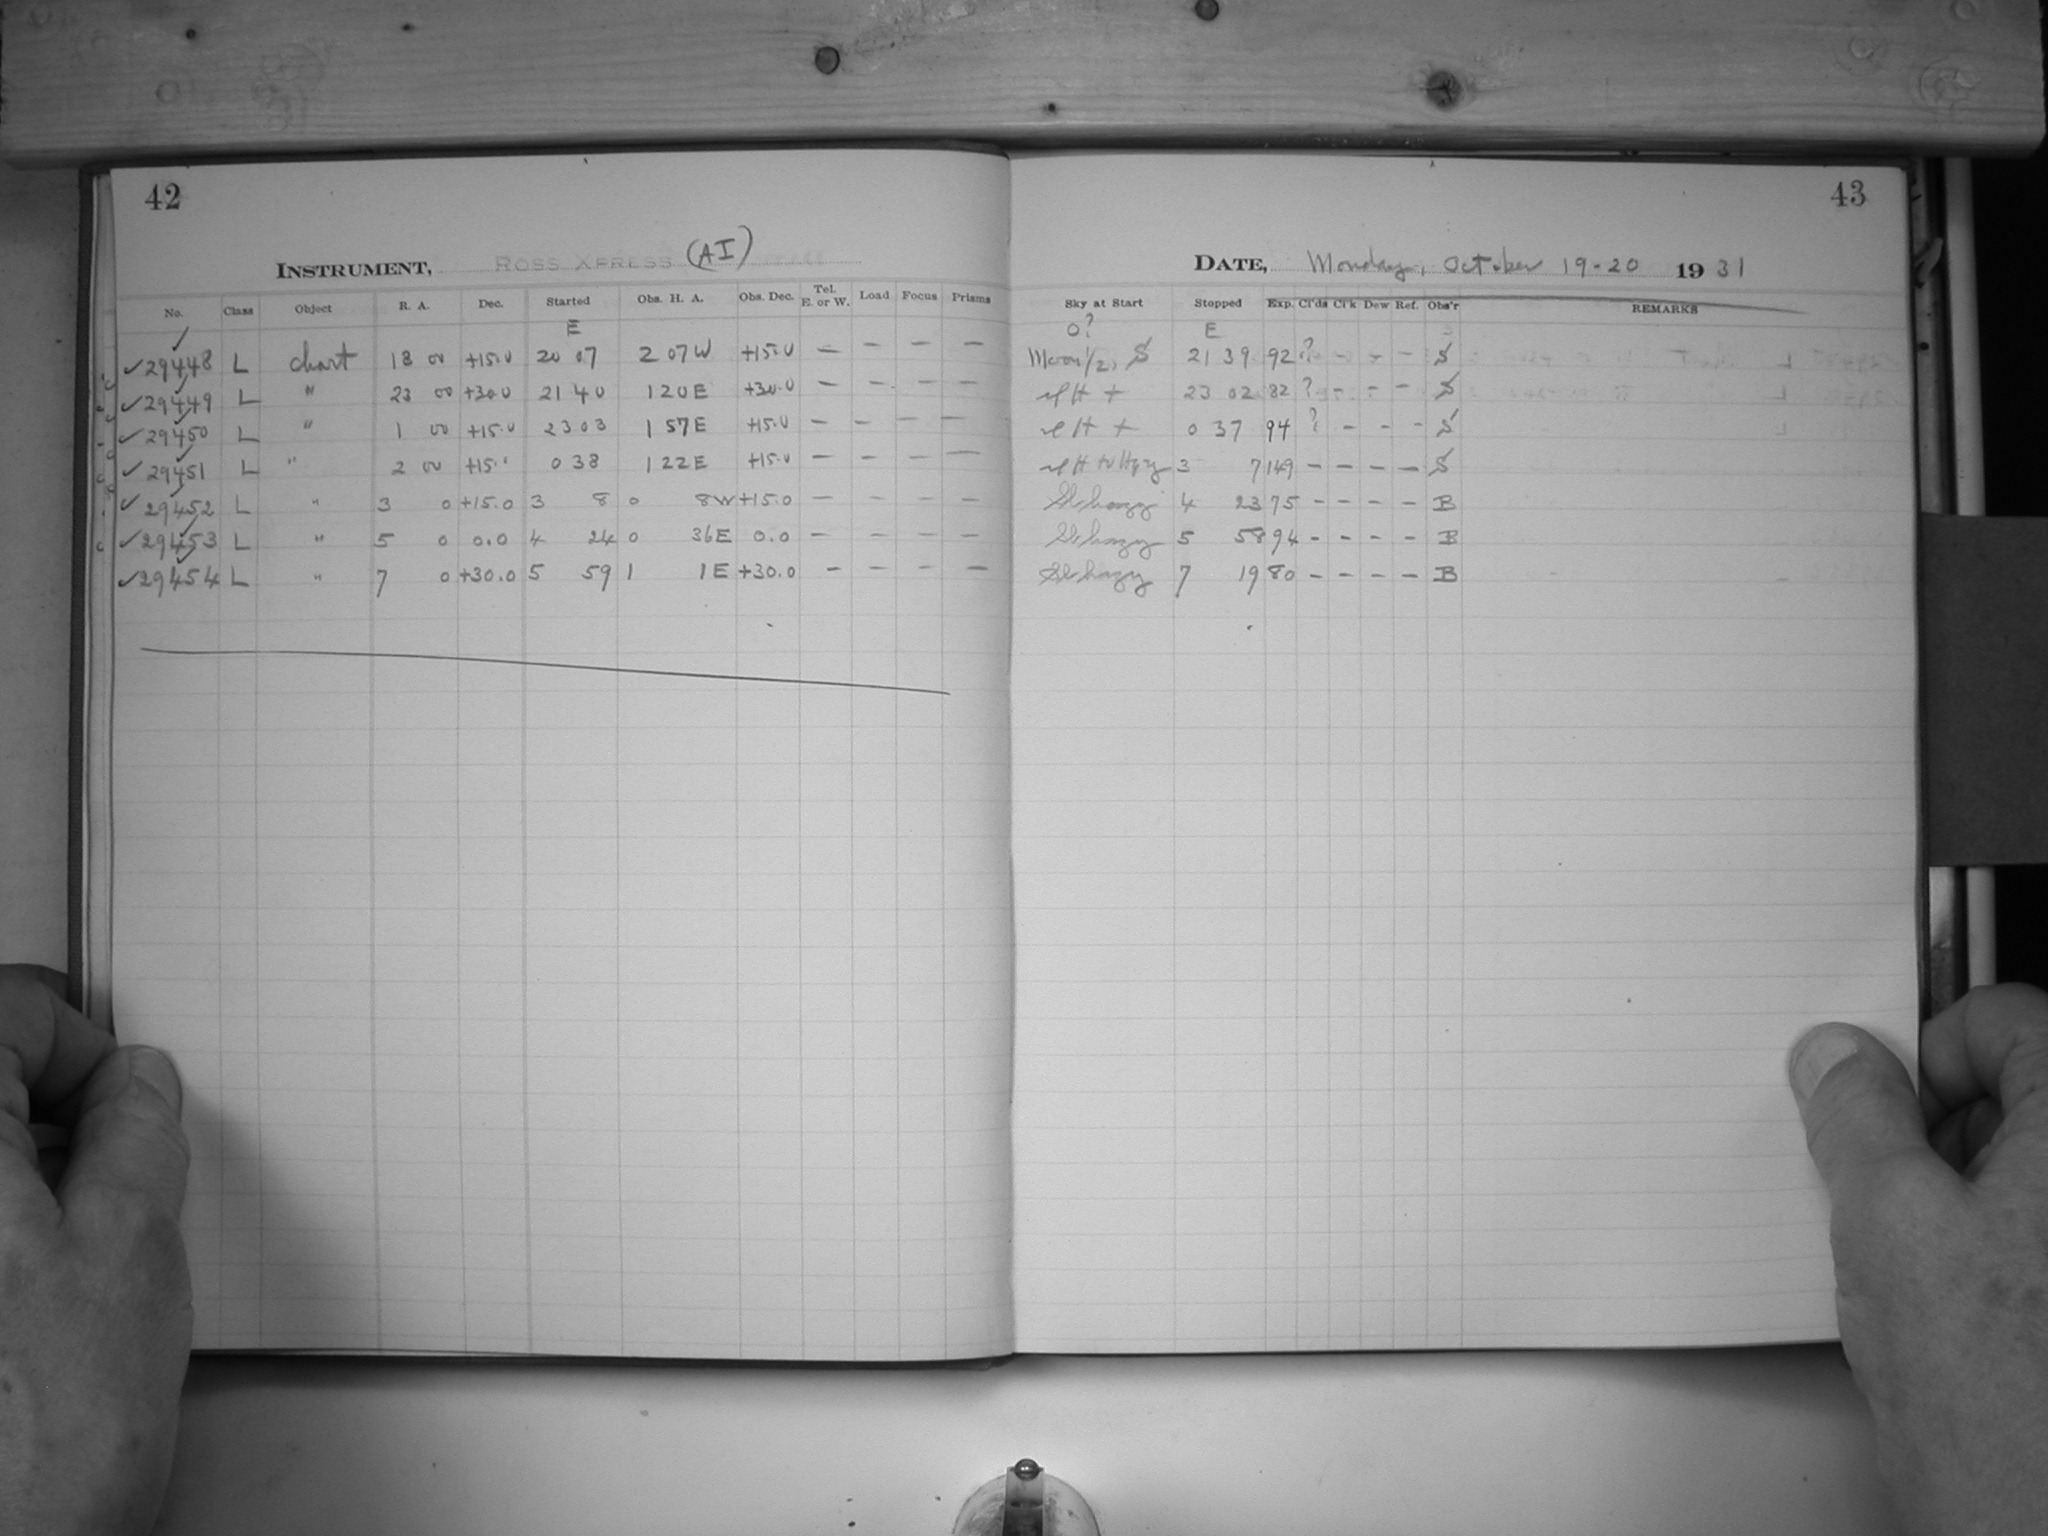 42
INSTRUMENT, ROSS XPRESS (AI)
No. Class Object R. A. Dec. Started Obs. H. A. Obs. Dec. Tel. E. or W. Load Focus Prisms
E
✓29448 L chart 18 00 +15.0 20 07 2 07W +15.0 — — — —
✓29449 L " 23 00 +30.0 21 40 1 20E +30.0 — — — —
✓29450 L " 1 00 +15.0 23 03 1 57E +15.0 — — — —
✓29451 L " 2 00 +15.0 0 38 1 22E +15.0 — — — —
✓29452 L " 3 0 +15.0 3 8 0 8W +15.0 — — — —
✓29453 L " 5 0 0.0 4 24 0 36E 0.0 — — — —
✓29454 L " 7 0 +30.0 5 59 1 1E +30.0 — — — —
43
DATE, Monday, October 19-20 1931
Sky at Start Stopped Exp. Cl'ds Cl'k Dew Ref. Obs'r REMARKS
O? E
Moon 1/2, S 21 39 92 ? - - - S
23 02 82 ? - - - S
0 37 94 ? - - - S
3 7 149 - - - - S
Sl hazy 4 23 75 - - - - B
Sl hazy 5 58 94 - - - - B
Sl hazy 7 19 80 - - - - B